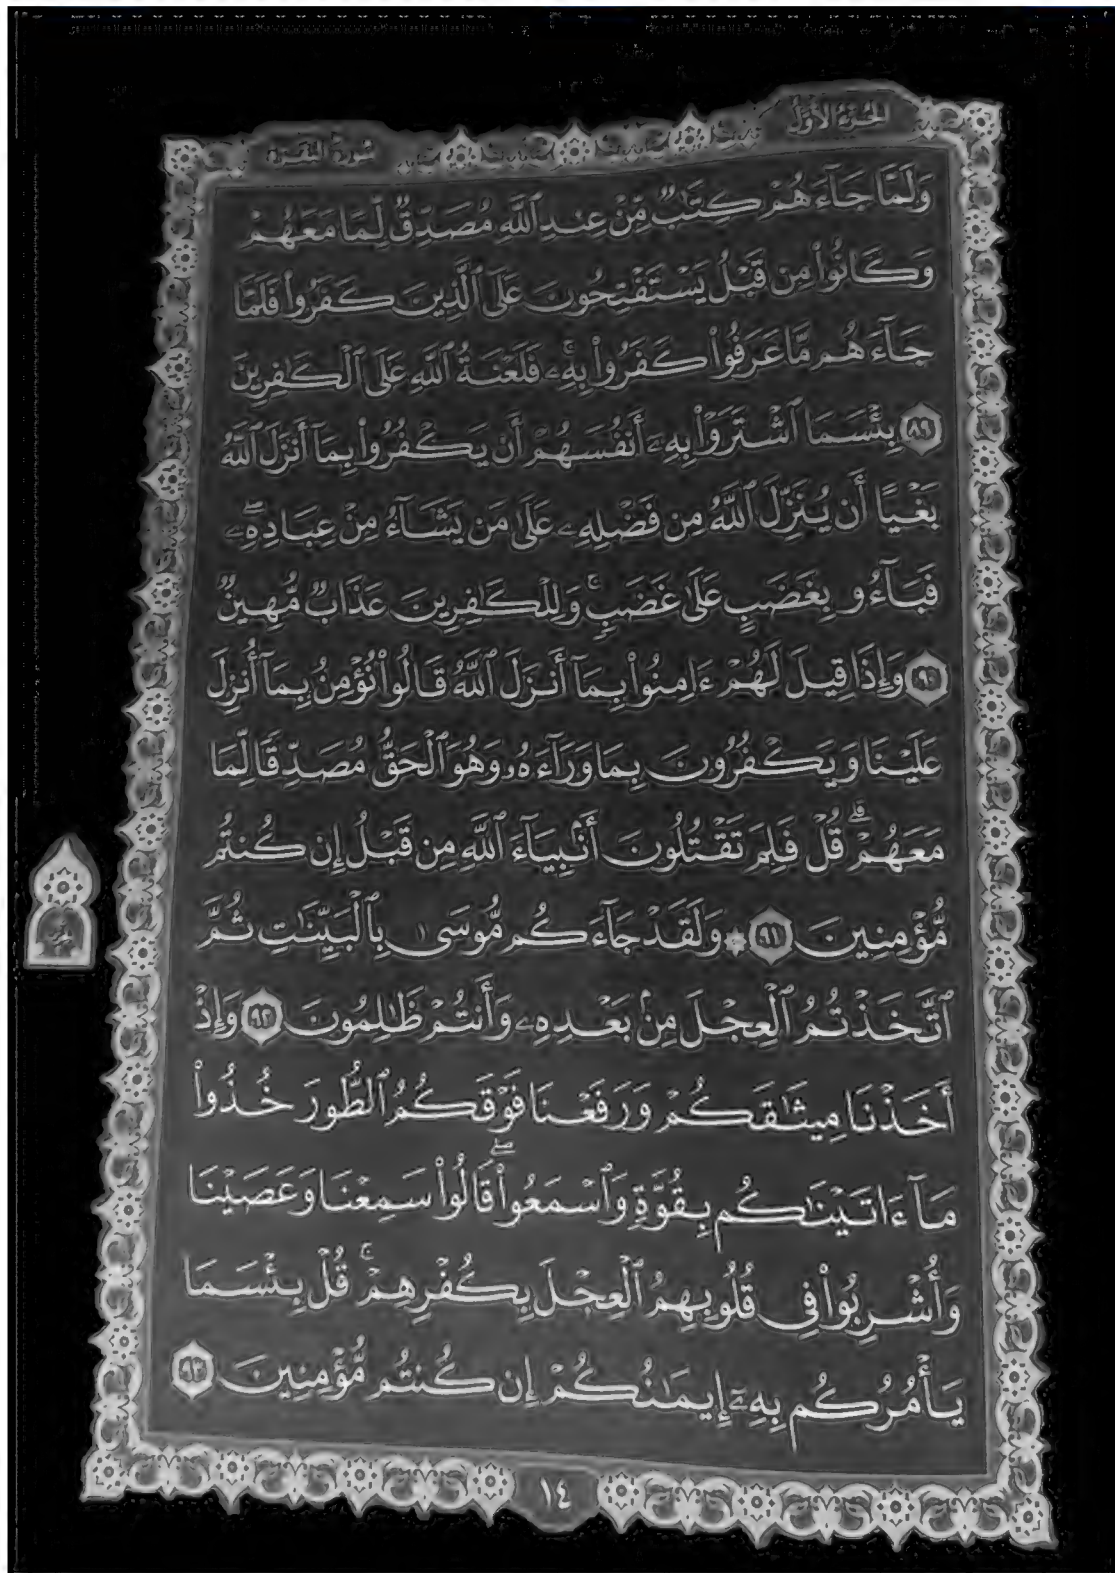 الجزء الأول
سورة البقرة
وَلَمَّا جَآءَهُمْ كِتَٰبٌ مِّنْ عِندِ ٱللَّهِ مُصَدِّقٌ لِّمَا مَعَهُمْ
وَكَانُوا۟ مِن قَبْلُ يَسْتَفْتِحُونَ عَلَى ٱلَّذِينَ كَفَرُوا۟ فَلَمَّا
جَآءَهُم مَّا عَرَفُوا۟ كَفَرُوا۟ بِهِۦ ۚ فَلَعْنَةُ ٱللَّهِ عَلَى ٱلْكَٰفِرِينَ
٨٩ بِئْسَمَا ٱشْتَرَوْا۟ بِهِۦٓ أَنفُسَهُمْ أَن يَكْفُرُوا۟ بِمَآ أَنزَلَ ٱللَّهُ
بَغْيًا أَن يُنَزِّلَ ٱللَّهُ مِن فَضْلِهِۦ عَلَىٰ مَن يَشَآءُ مِنْ عِبَادِهِۦ ۖ
فَبَآءُو بِغَضَبٍ عَلَىٰ غَضَبٍ ۚ وَلِلْكَٰفِرِينَ عَذَابٌ مُّهِينٌ
٩٠ وَإِذَا قِيلَ لَهُمْ ءَامِنُوا۟ بِمَآ أَنزَلَ ٱللَّهُ قَالُوا۟ نُؤْمِنُ بِمَآ أُنزِلَ
عَلَيْنَا وَيَكْفُرُونَ بِمَا وَرَآءَهُۥ وَهُوَ ٱلْحَقُّ مُصَدِّقًا لِّمَا
مَعَهُمْ ۗ قُلْ فَلِمَ تَقْتُلُونَ أَنۢبِيَآءَ ٱللَّهِ مِن قَبْلُ إِن كُنتُم
مُّؤْمِنِينَ ٩١ ۞ وَلَقَدْ جَآءَكُم مُّوسَىٰ بِٱلْبَيِّنَٰتِ ثُمَّ
ٱتَّخَذْتُمُ ٱلْعِجْلَ مِنۢ بَعْدِهِۦ وَأَنتُمْ ظَٰلِمُونَ ٩٢ وَإِذْ
أَخَذْنَا مِيثَٰقَكُمْ وَرَفَعْنَا فَوْقَكُمُ ٱلطُّورَ خُذُوا۟
مَآ ءَاتَيْنَٰكُم بِقُوَّةٍ وَٱسْمَعُوا۟ ۖ قَالُوا۟ سَمِعْنَا وَعَصَيْنَا
وَأُشْرِبُوا۟ فِى قُلُوبِهِمُ ٱلْعِجْلَ بِكُفْرِهِمْ ۚ قُلْ بِئْسَمَا
يَأْمُرُكُم بِهِۦٓ إِيمَٰنُكُمْ إِن كُنتُم مُّؤْمِنِينَ ٩٣
١٤